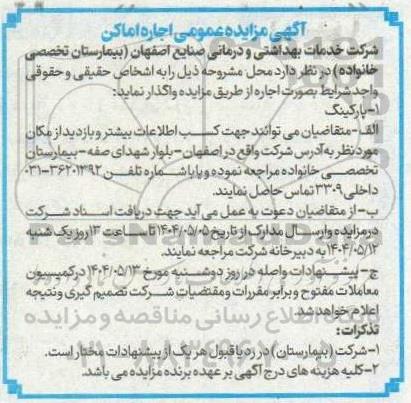 آگهی مزایده عمومی اجاره اماکن
شرکت خدمات بهداشتی و درمانی صنایع اصفهان (بیمارستان تخصصی
خانواده) در نظر دارد محل مشروحه ذیل را به اشخاص حقیقی و حقوقی
واجد شرایط بصورت اجاره از طریق مزایده واگذار نماید:
۱- پارکینگ
الف- متقاضیان می توانند جهت کسب اطلاعات بیشتر و بازدید از مکان
مورد نظر به آدرس شرکت واقع در اصفهان- بلوار شهدای صفه- بیمارستان
تخصصی خانواده مراجعه نموده و یا با شماره تلفن ۳۶۲۰۱۳۹۲-۰۳۱
داخلی ۳۳۰۹ تماس حاصل نمایند.
ب- از متقاضیان دعوت به عمل می آید جهت دریافت اسناد شرکت
در مزایده و ارسال مدارک از تاریخ ۱۴۰۴/۰۵/۰۵ تا ساعت ۱۳ روز یک شنبه
۱۴۰۴/۰۵/۱۲ به دبیرخانه شرکت مراجعه نمایند.
ج- پیشنهادات واصله در روز دوشنبه مورخ ۱۴۰۴/۰۵/۱۳ در کمیسیون
معاملات مفتوح و برابر مقررات و مقتضیات شرکت تصمیم گیری و نتیجه
اعلام خواهد شد.
تذکرات:
۱- شرکت (بیمارستان) در رد یا قبول هر یک از پیشنهادات مختار است.
۲- کلیه هزینه های درج آگهی بر عهده برنده مزایده می باشد.